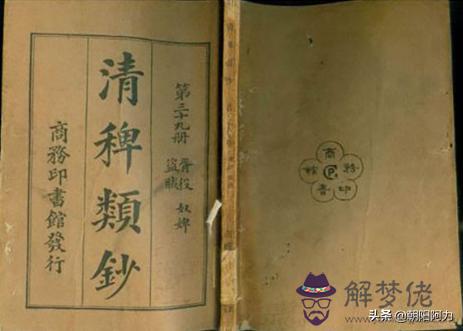 第三十九册 胥役 奴婢
盜賊
清稗類鈔
商務印書館發行
商務印書館
解梦佬
头条 @朝阳阿力